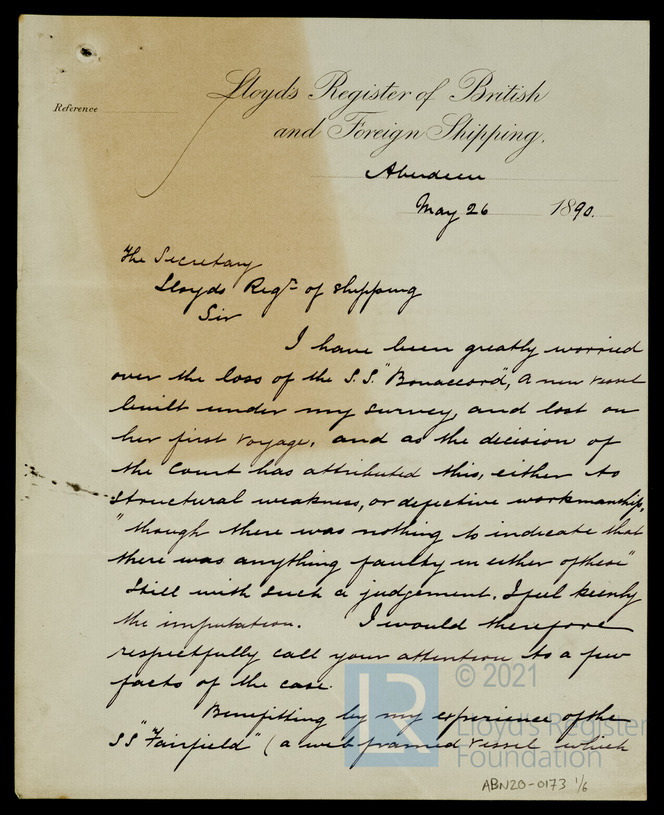 Lloyds Register of British
Reference
and Foreign Shipping.
Aberdeen
May 26 1890.
The Secretary
Lloyds Regr. of Shipping
Sir
I have been greatly worried
over the loss of the S.S. "Bonaccord", a new vessel
built under my survey, and lost on
her first voyage, and as the decision of
the Court has attributed this, either to
structural weakness, or defective workmanship,
"though there was nothing to indicate that
there was anything faulty in either of these"
Still with such a judgement, I feel keenly
the imputation. I would therefore
respectfully call your attention to a few
facts of the case.
Benefitting by my experience of the
SS "Fairfield" (a web framed vessel which
© 2021
LR
Lloyd's Register
Foundation
ABN20-0173 1/6